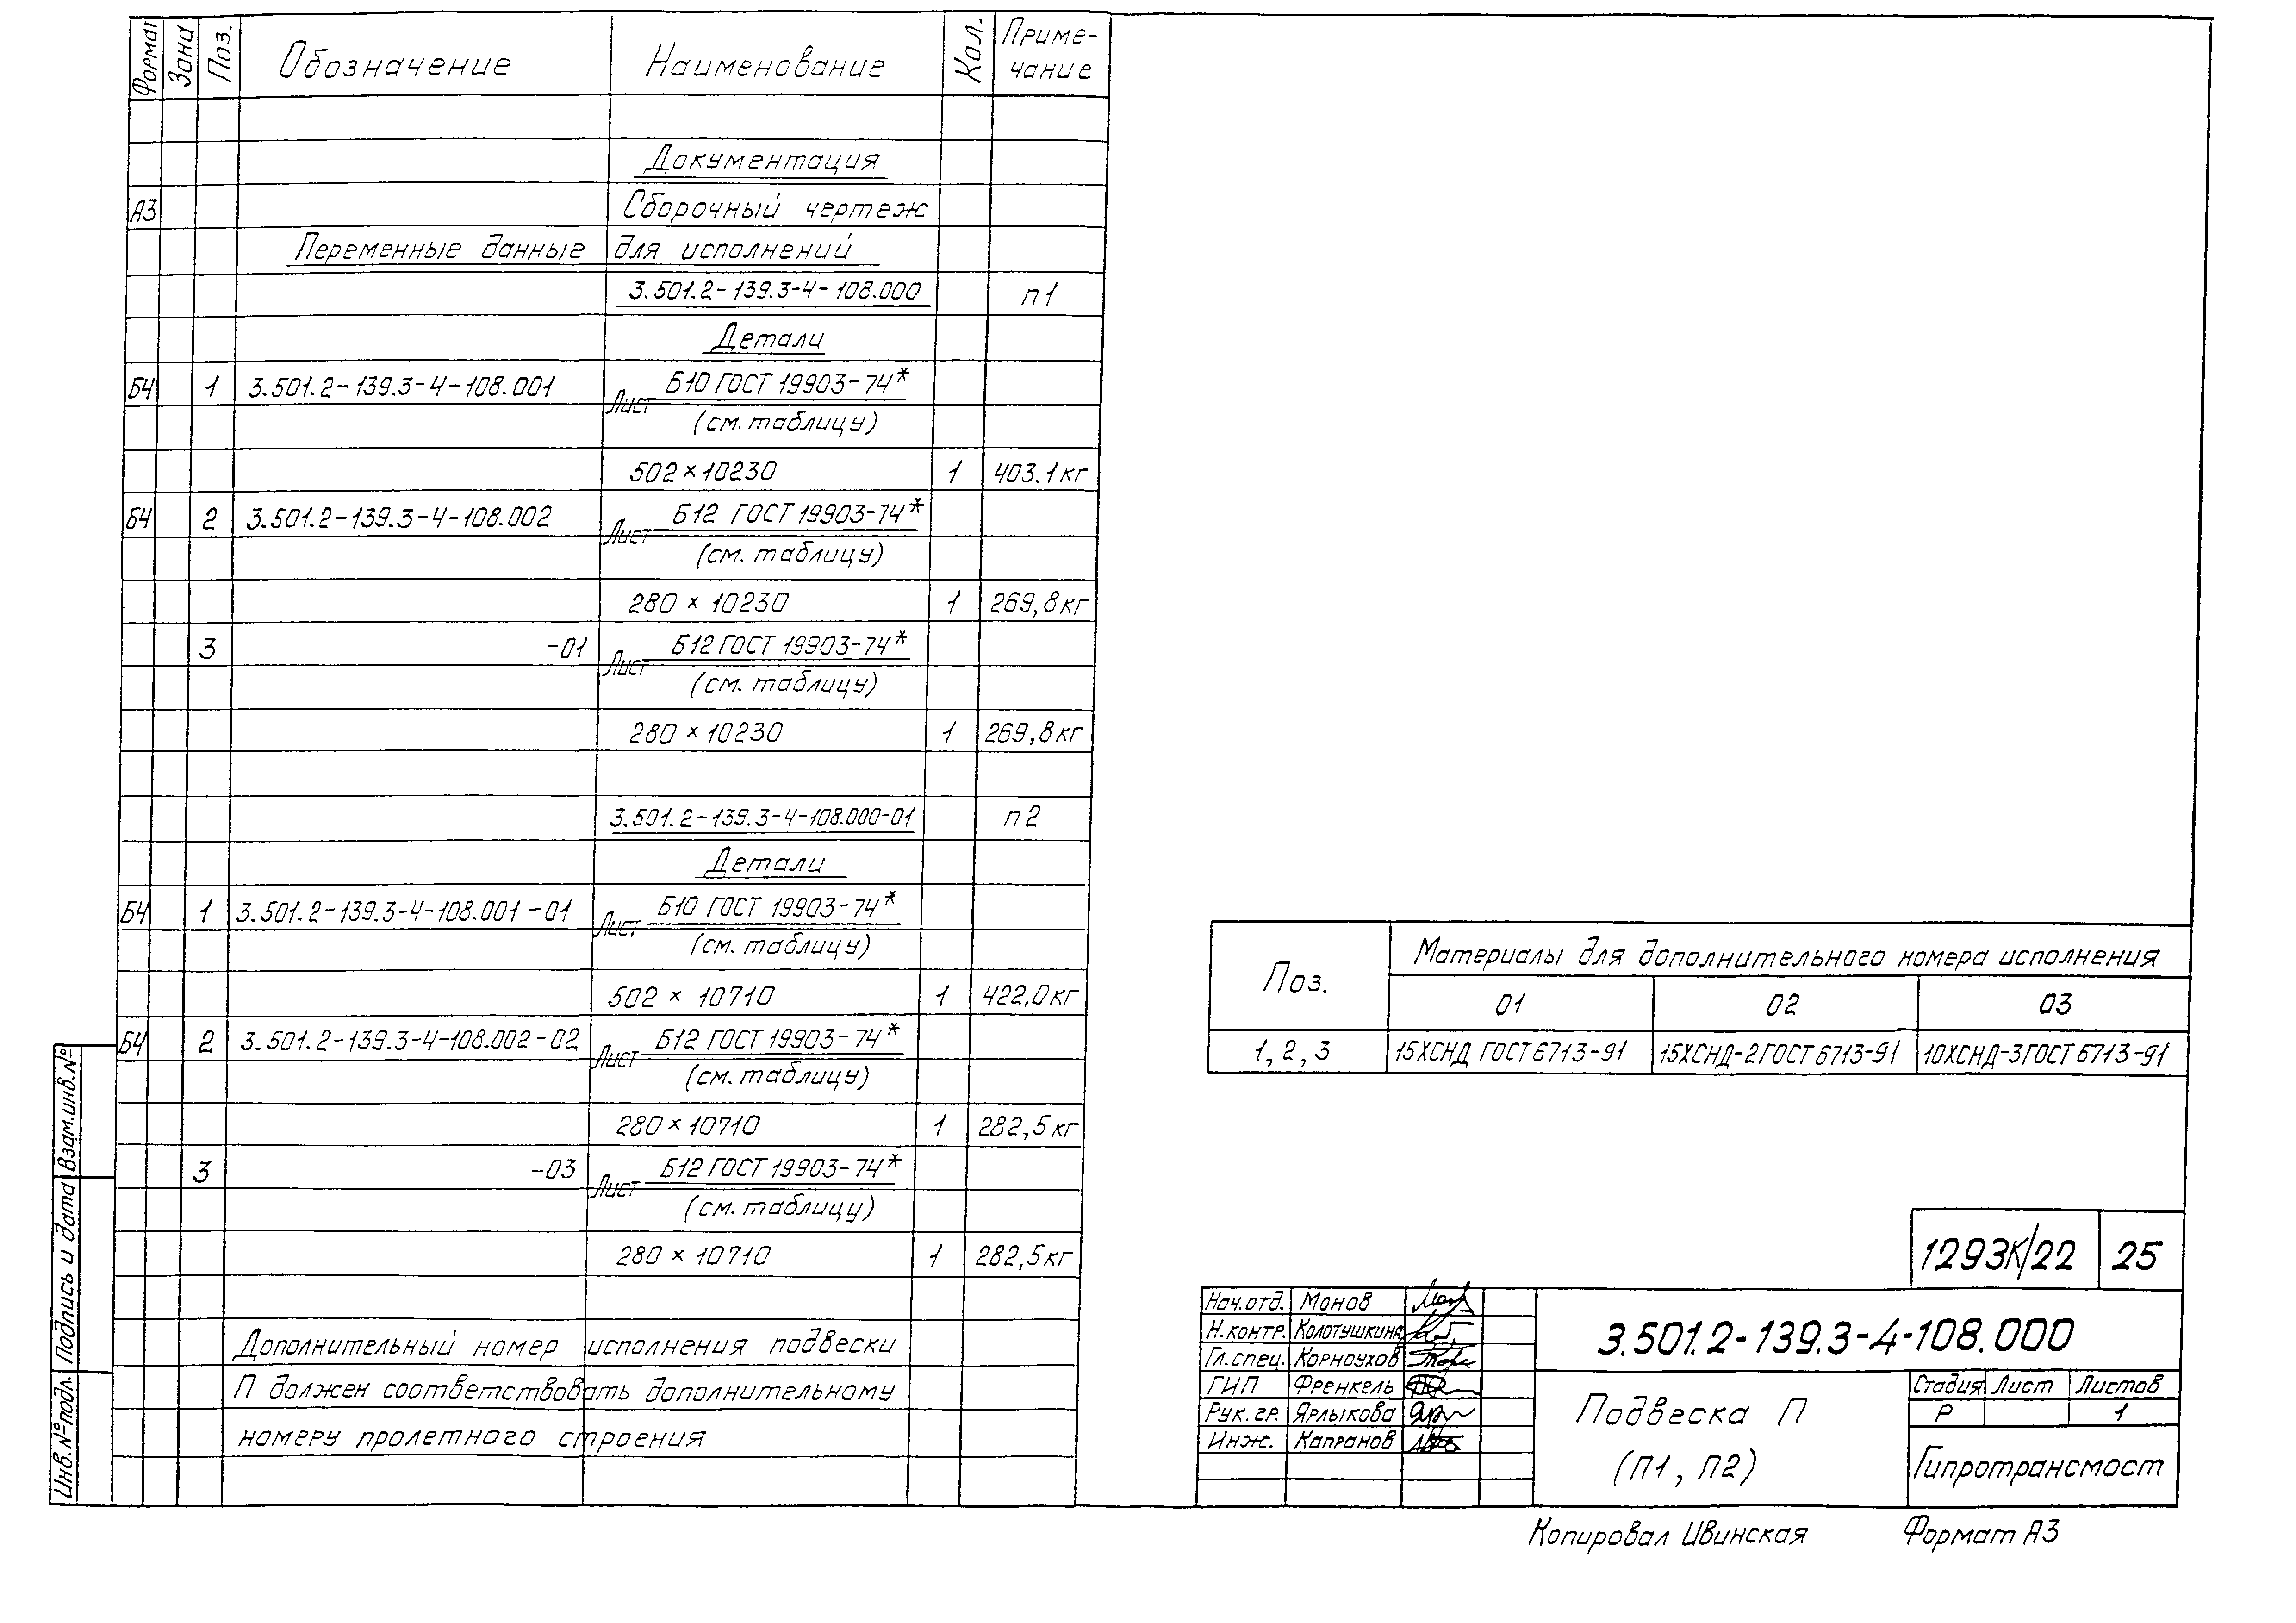 Формат Зона Поз. Обозначение Наименование Кол. Приме-
чание
Документация
А3 Сборочный чертеж
Переменные данные для исполнений
3.501.2-139.3-4-108.000 п1
Детали
Б4 1 3.501.2-139.3-4-108.001 Лист Б10 ГОСТ 19903-74*
(см. таблицу)
502 × 10230 1 403.1 кг
Б4 2 3.501.2-139.3-4-108.002 Лист Б12 ГОСТ 19903-74*
(см. таблицу)
280 × 10230 1 269,8 кг
3 -01 Лист Б12 ГОСТ 19903-74*
(см. таблицу)
280 × 10230 1 269,8 кг
3.501.2-139.3-4-108.000-01 п2
Детали
Б4 1 3.501.2-139.3-4-108.001-01 Лист Б10 ГОСТ 19903-74*
(см. таблицу)
502 × 10710 1 422,0 кг
Б4 2 3.501.2-139.3-4-108.002-02 Лист Б12 ГОСТ 19903-74*
(см. таблицу)
280 × 10710 1 282,5 кг
3 -03 Лист Б12 ГОСТ 19903-74*
(см. таблицу)
280 × 10710 1 282,5 кг
Дополнительный номер исполнения подвески
П должен соответствовать дополнительному
номеру пролетного строения
Взам.инв.№
Подпись и дата
Инв.№подл.
Поз. Материалы для дополнительного номера исполнения
01 02 03
1, 2, 3 15ХСНД ГОСТ 6713-91 15ХСНД-2 ГОСТ 6713-91 10ХСНД-3 ГОСТ 6713-91
1293К/22 25
Нач.отд. Монов
Н.контр. Колотушкина
Гл.спец. Корноухов
ГИП Френкель
Рук.гр. Ярлыкова
Инж. Капранов
3.501.2-139.3-4-108.000
Подвеска П
(П1, П2)
Стадия Лист Листов
Р 1
Гипротрансмост
Копировал Ивинская Формат А3